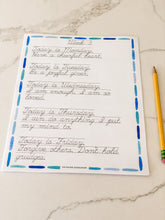 Week 3
Today is Monday.
Have a cheerful heart.
Today is Tuesday.
Be a joyful giver.
Today is Wednesday.
I am enough. I am so
loved.
Today is Thursday.
I can do anything I put
my mind to.
Today is Friday.
Forgive others. Don't hold
grudges.